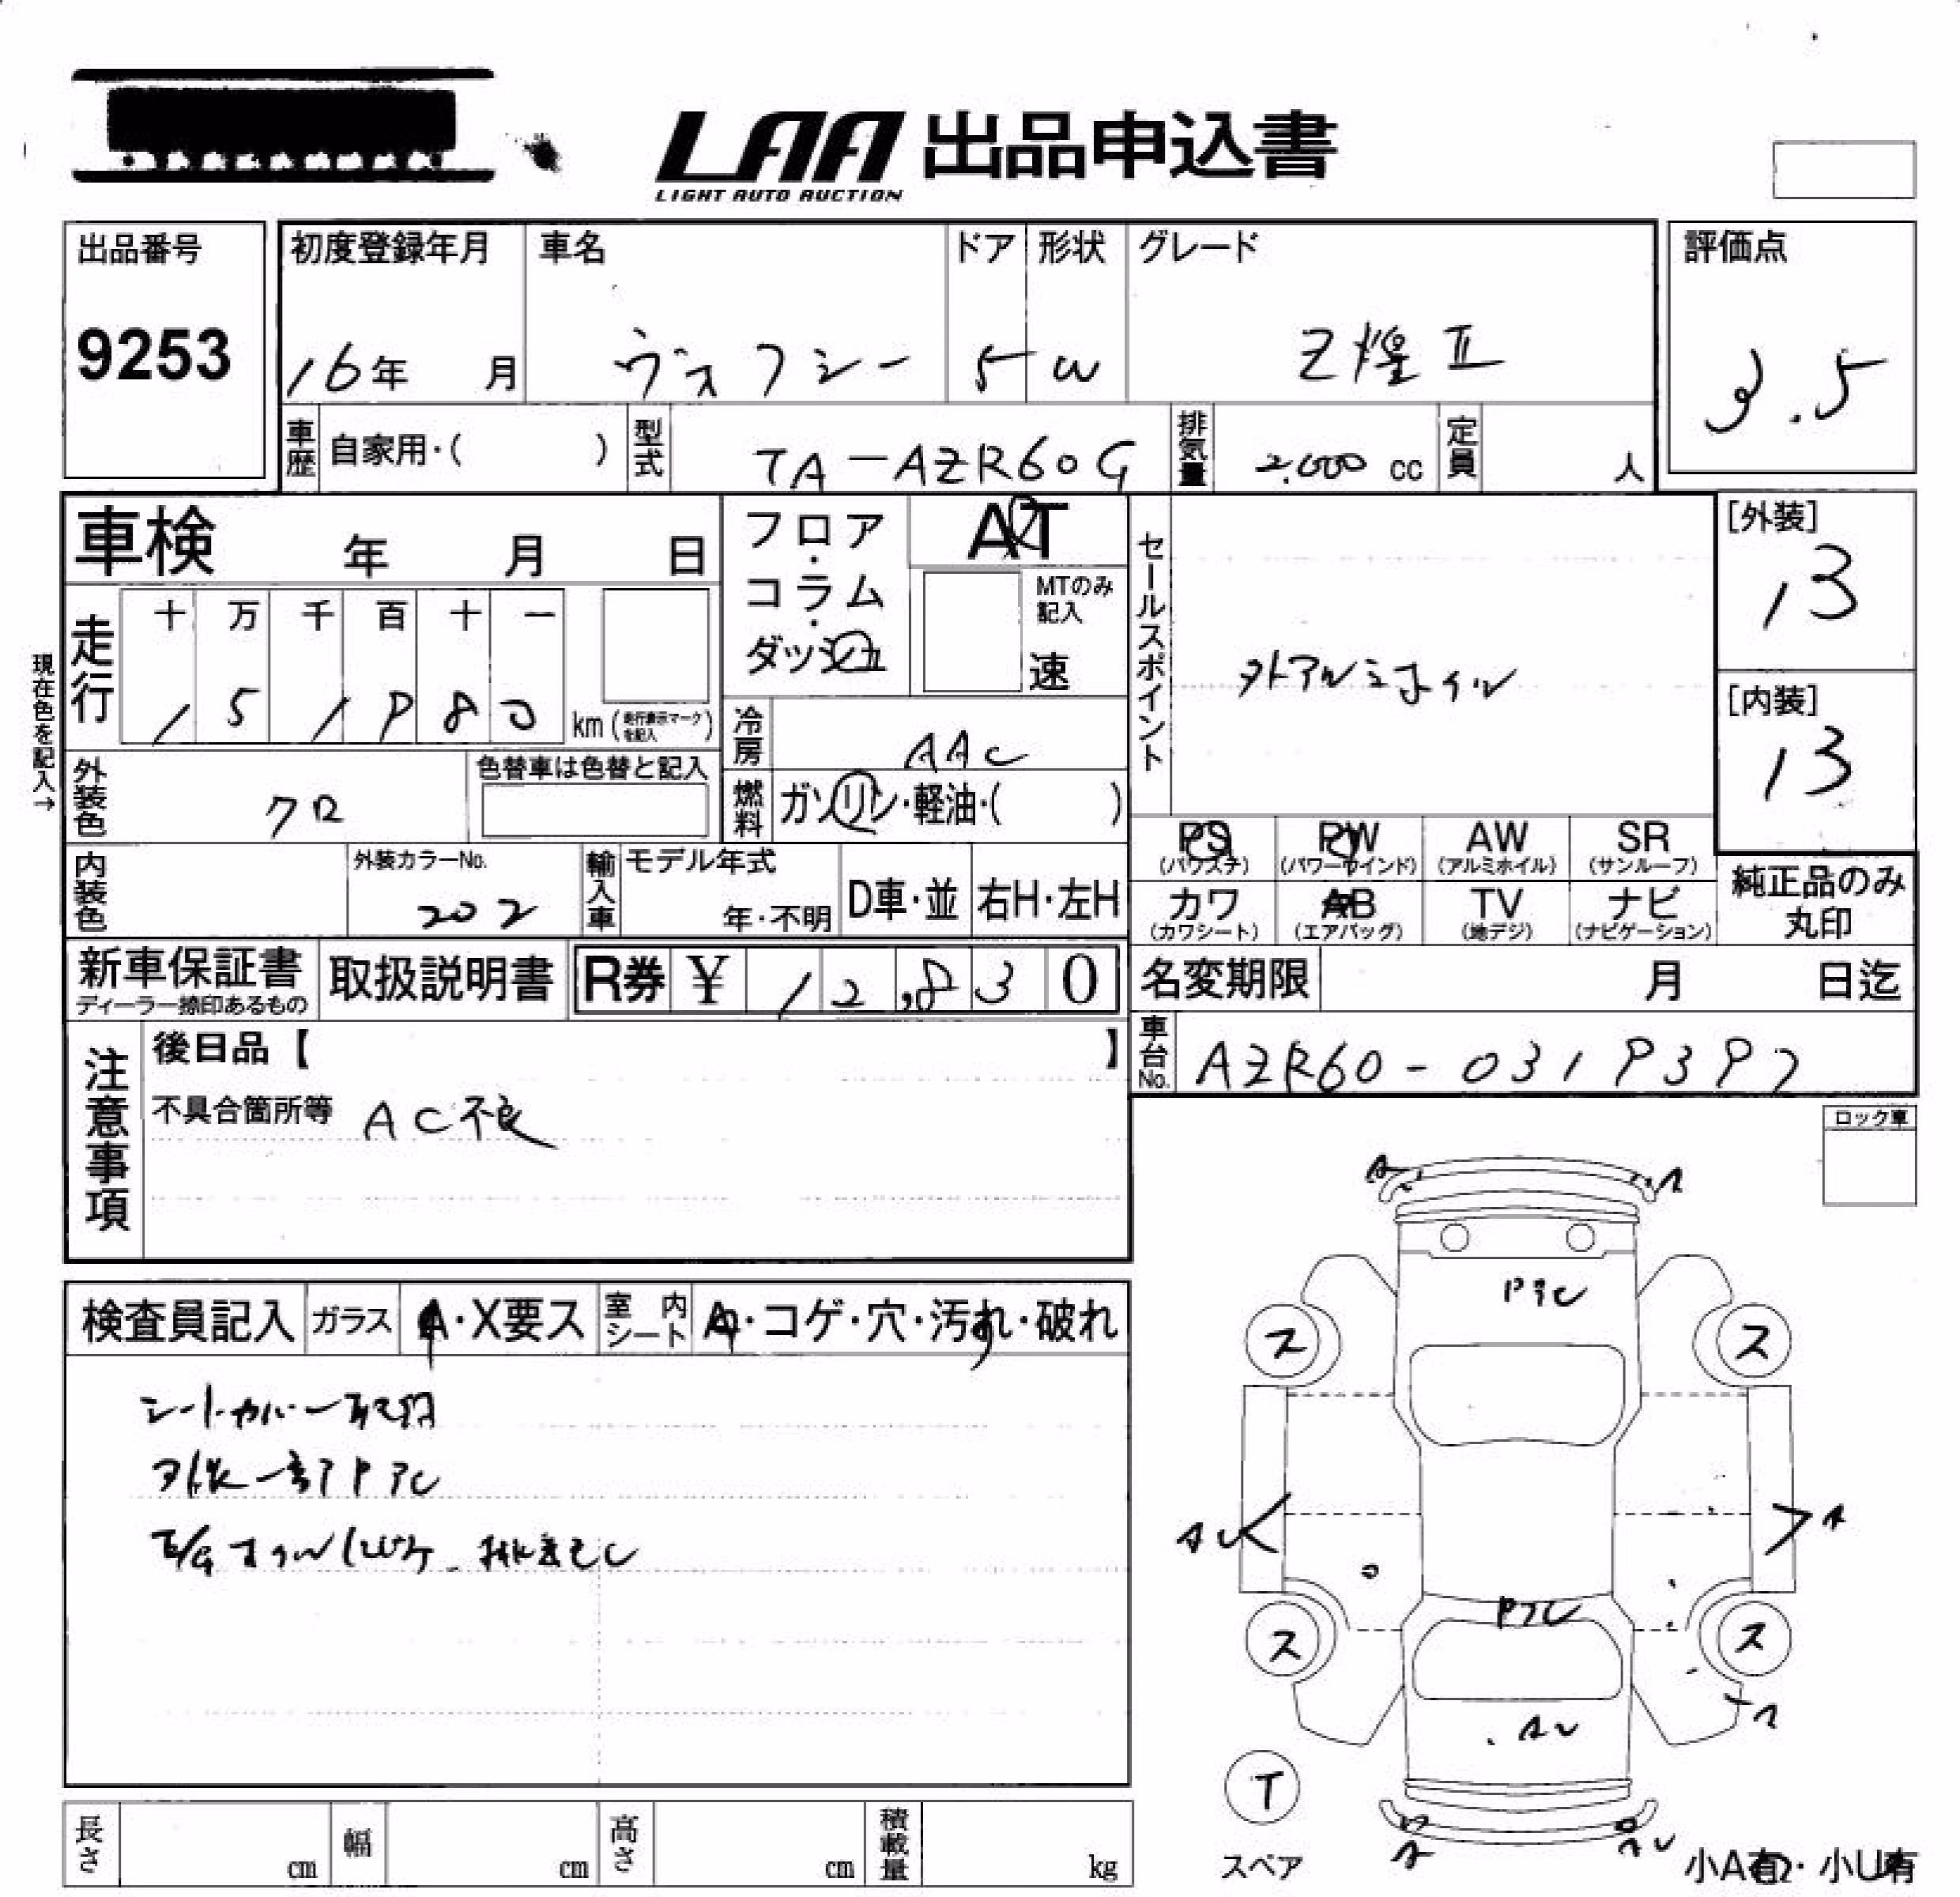 LAA 出品申込書
LIGHT AUTO AUCTION
出品番号 初度登録年月 車名 ドア 形状 グレード 評価点
9253 16年 月 ヴォクシー 5 W Z煌Ⅱ 3.5
車歴 自家用・( ) 型式 TA-AZR60G 排気量 2,000 cc 定員 人
車検 年 月 日 フロア・コラム・ダッシュ AT セールスポイント [外装]
13
MTのみ記入
速
走行 十 万 千 百 十 一
1 5 1 9 8 0 km (走行表示マークを記入)
現在色を記入→
外アルミホイル
[内装]
13
冷房 AAC
外装色 クロ 色替車は色替と記入 燃料 ガソリン・軽油・( )
PS (パワステ) PW (パワーウインド) AW (アルミホイル) SR (サンルーフ)
内装色 外装カラーNo. 202 輸入車 モデル年式 年・不明 D車・並 右H・左H
カワ (カワシート) AB (エアバッグ) TV (地デジ) ナビ (ナビゲーション) 純正品のみ丸印
新車保証書 ディーラー捺印あるもの 取扱説明書 R券 ¥ 12,830 名変期限 月 日迄
注意事項 後日品【 】 車台No. AZR60-0319397
不具合箇所等 AC不良
ロック車
A A
Pアセ
検査員記入 ガラス A・X要ス 室内シート A・コゲ・穴・汚れ・破れ
ス ス
シートカバー取付
外装一部Pアセ
AU A
Pアセ
ス ス
A
AU
T
スペア
A AU
小A有・小U有
長さ cm 幅 cm 高さ cm 積載量 kg